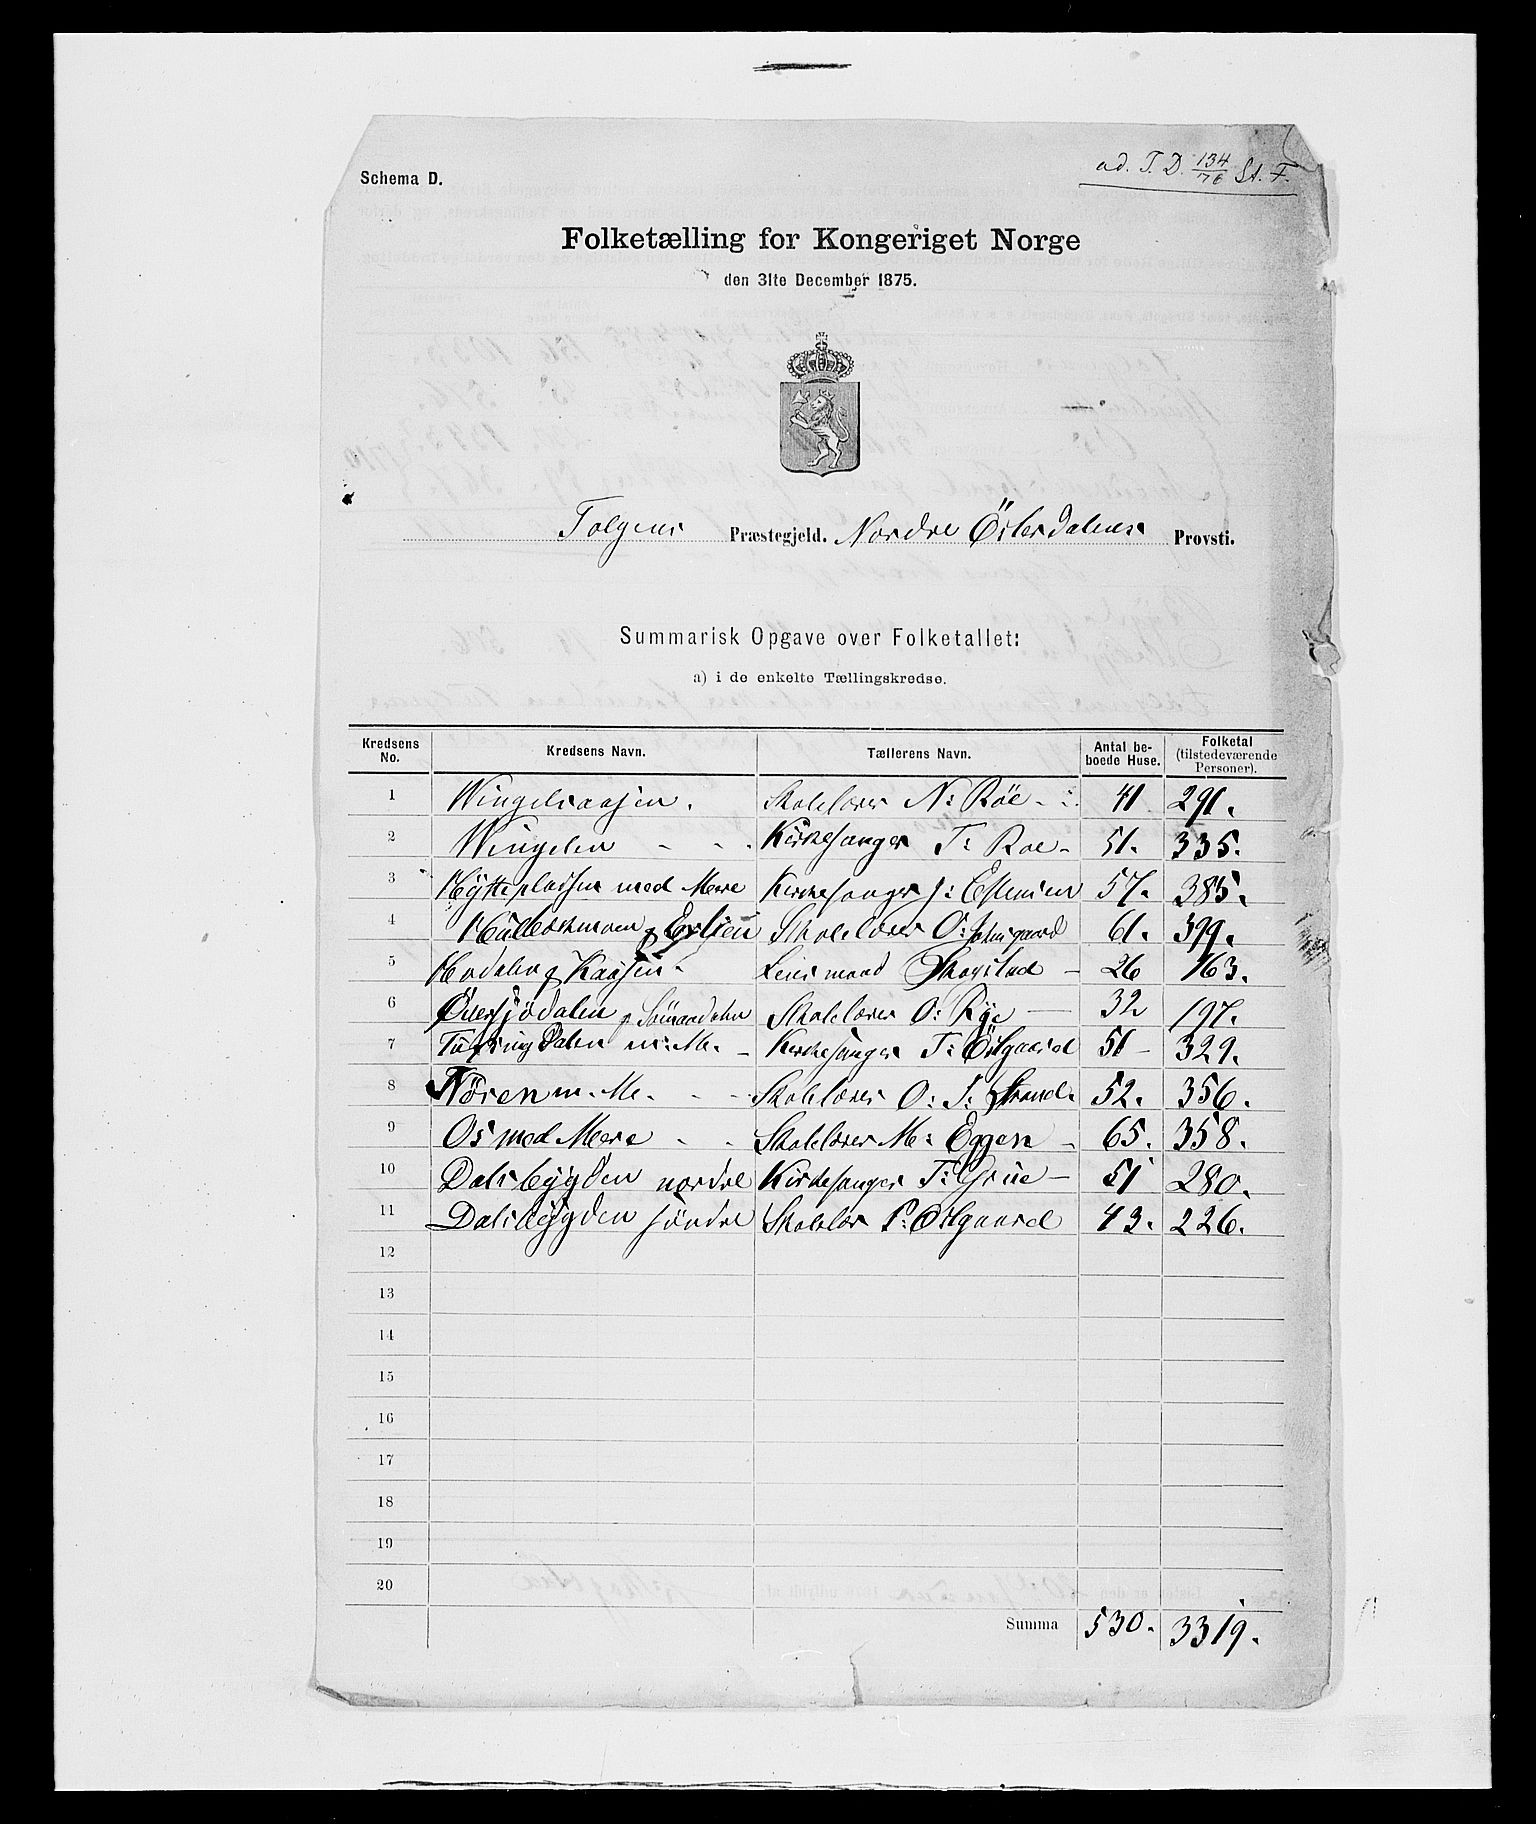 ad. T. D. 134/76 St. F.
Schema D.
Folketælling for Kongeriget Norge
den 31te December 1875.
Tolgens Præstegjeld. Nordre Österdalens Provsti.
Summarisk Opgave over Folketallet:
a) i de enkelte Tællingskredse.
Kredsens No. Kredsens Navn. Tællerens Navn. Antal be-boede Huse. Folketal (tilstedeværende Personer).
1 Wingelsaasen. Skolelærer N: Röe 41 291.
2 Wingelen Kirkesanger T: Roe 51. 335.
3 Hytteplassen med Mere Kirkesanger J: Estensen 57. 385.
4 og Erlien Skolelærer O: 61. 399.
5 Hodalen og Kaasen. Lensmand Skogstad 26 163.
6 Översjödalen og Sömaadalen Skolelærer O: Rye 32 197.
7 dalen m: M. Kirkesanger T: Östgaard 51 329.
8 Nören m. M. Skolelærer O: T: Strand. 52. 356.
9 Os med Mere Skolelærer M: Eggen 65. 358.
10 Dalsbygden nordre Kirkesanger T: Grue 51 280.
11 Dalsbygden söndre Skolelær P: Östgaard 43. 226.
12
13
14
15
16
17
18
19
20
Summa 530. 3319.